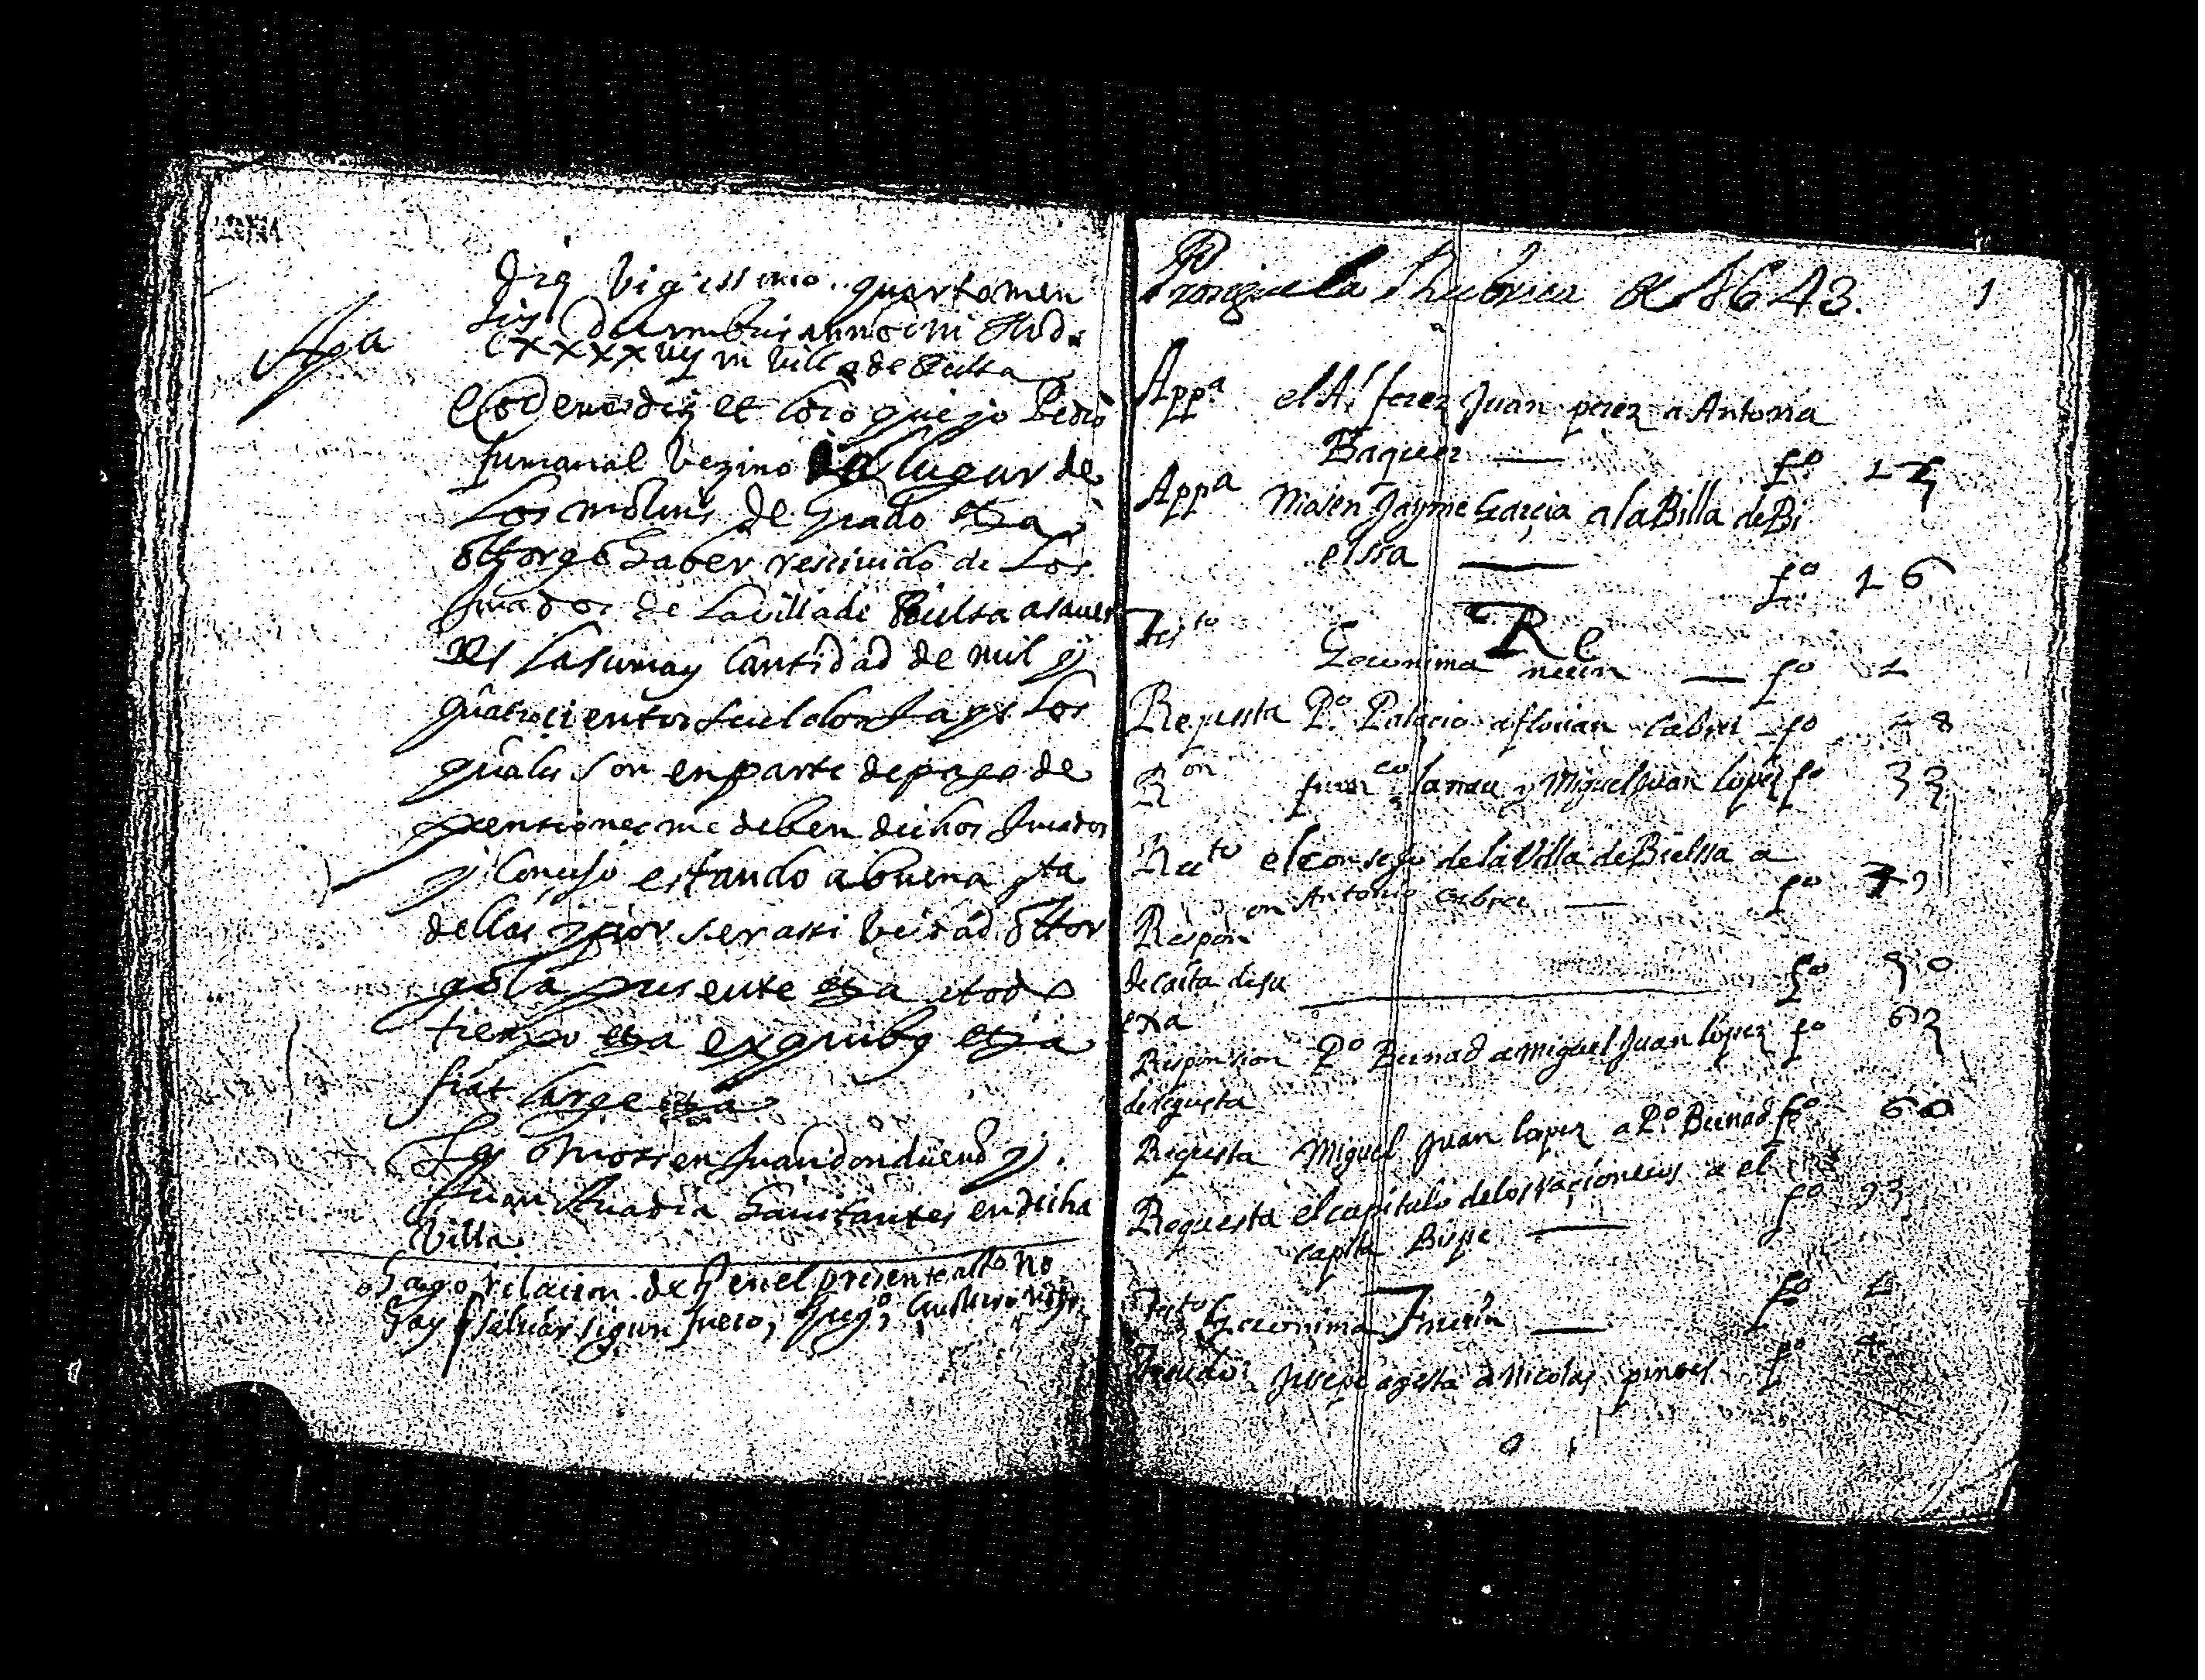 Die vigessimo quarto men
sis Decembris anno Dni M.D.
CXXXXVII in villa de Bielsa
Apa
Eodem die et loco que yo Pedro
fumanal vezino del lugar de
Los molinos de Grado etza
ottorgo haber rescivido de Los
Jurados de la villa de Bielsa
la suma y Cantidad de mil y
quatrocientos sueldos Jaqs Los
quales son en parte de pago de
pensiones me deben dichos Jurados
y Concejo estando a buena qta
dellas y por ser assi verdad ottor
go la presente etza a todo
tiempo etza ex quibus etza
fiat large etza
Tes Mossen Juan y
Juan havitantes en dicha
Villa
hago relacion de q en el presente acto no
hay q salvar sigun fuero,
Prosigue la Rhubrica de 1643. 1
Appa el Alferez Juan perez a Antonia
Baquer — fo 15
Appa Mosen Jayme Garcia a la Billa de Bi
elssa — fo 16
Re
Testo Geronima — fo 1
Requesta Po Palacio a florian Cabrer fo 48
Ron Franco lanau y Miguel Juan lopez fo 33
el consejo de la Villa de Bielssa a
Antonio — fo
Respon
de carta de su — fo 50
exa
Responsion Po Bernad a miguel Juan lopez fo 63
de requesta
Requesta Miguel Juan lopez a Po Bernad fo 60
Requesta el capitulo de los racioneros a el
— fo 93
Testo Geronima — fo 1
Jusepe agesta a Nicolas fo